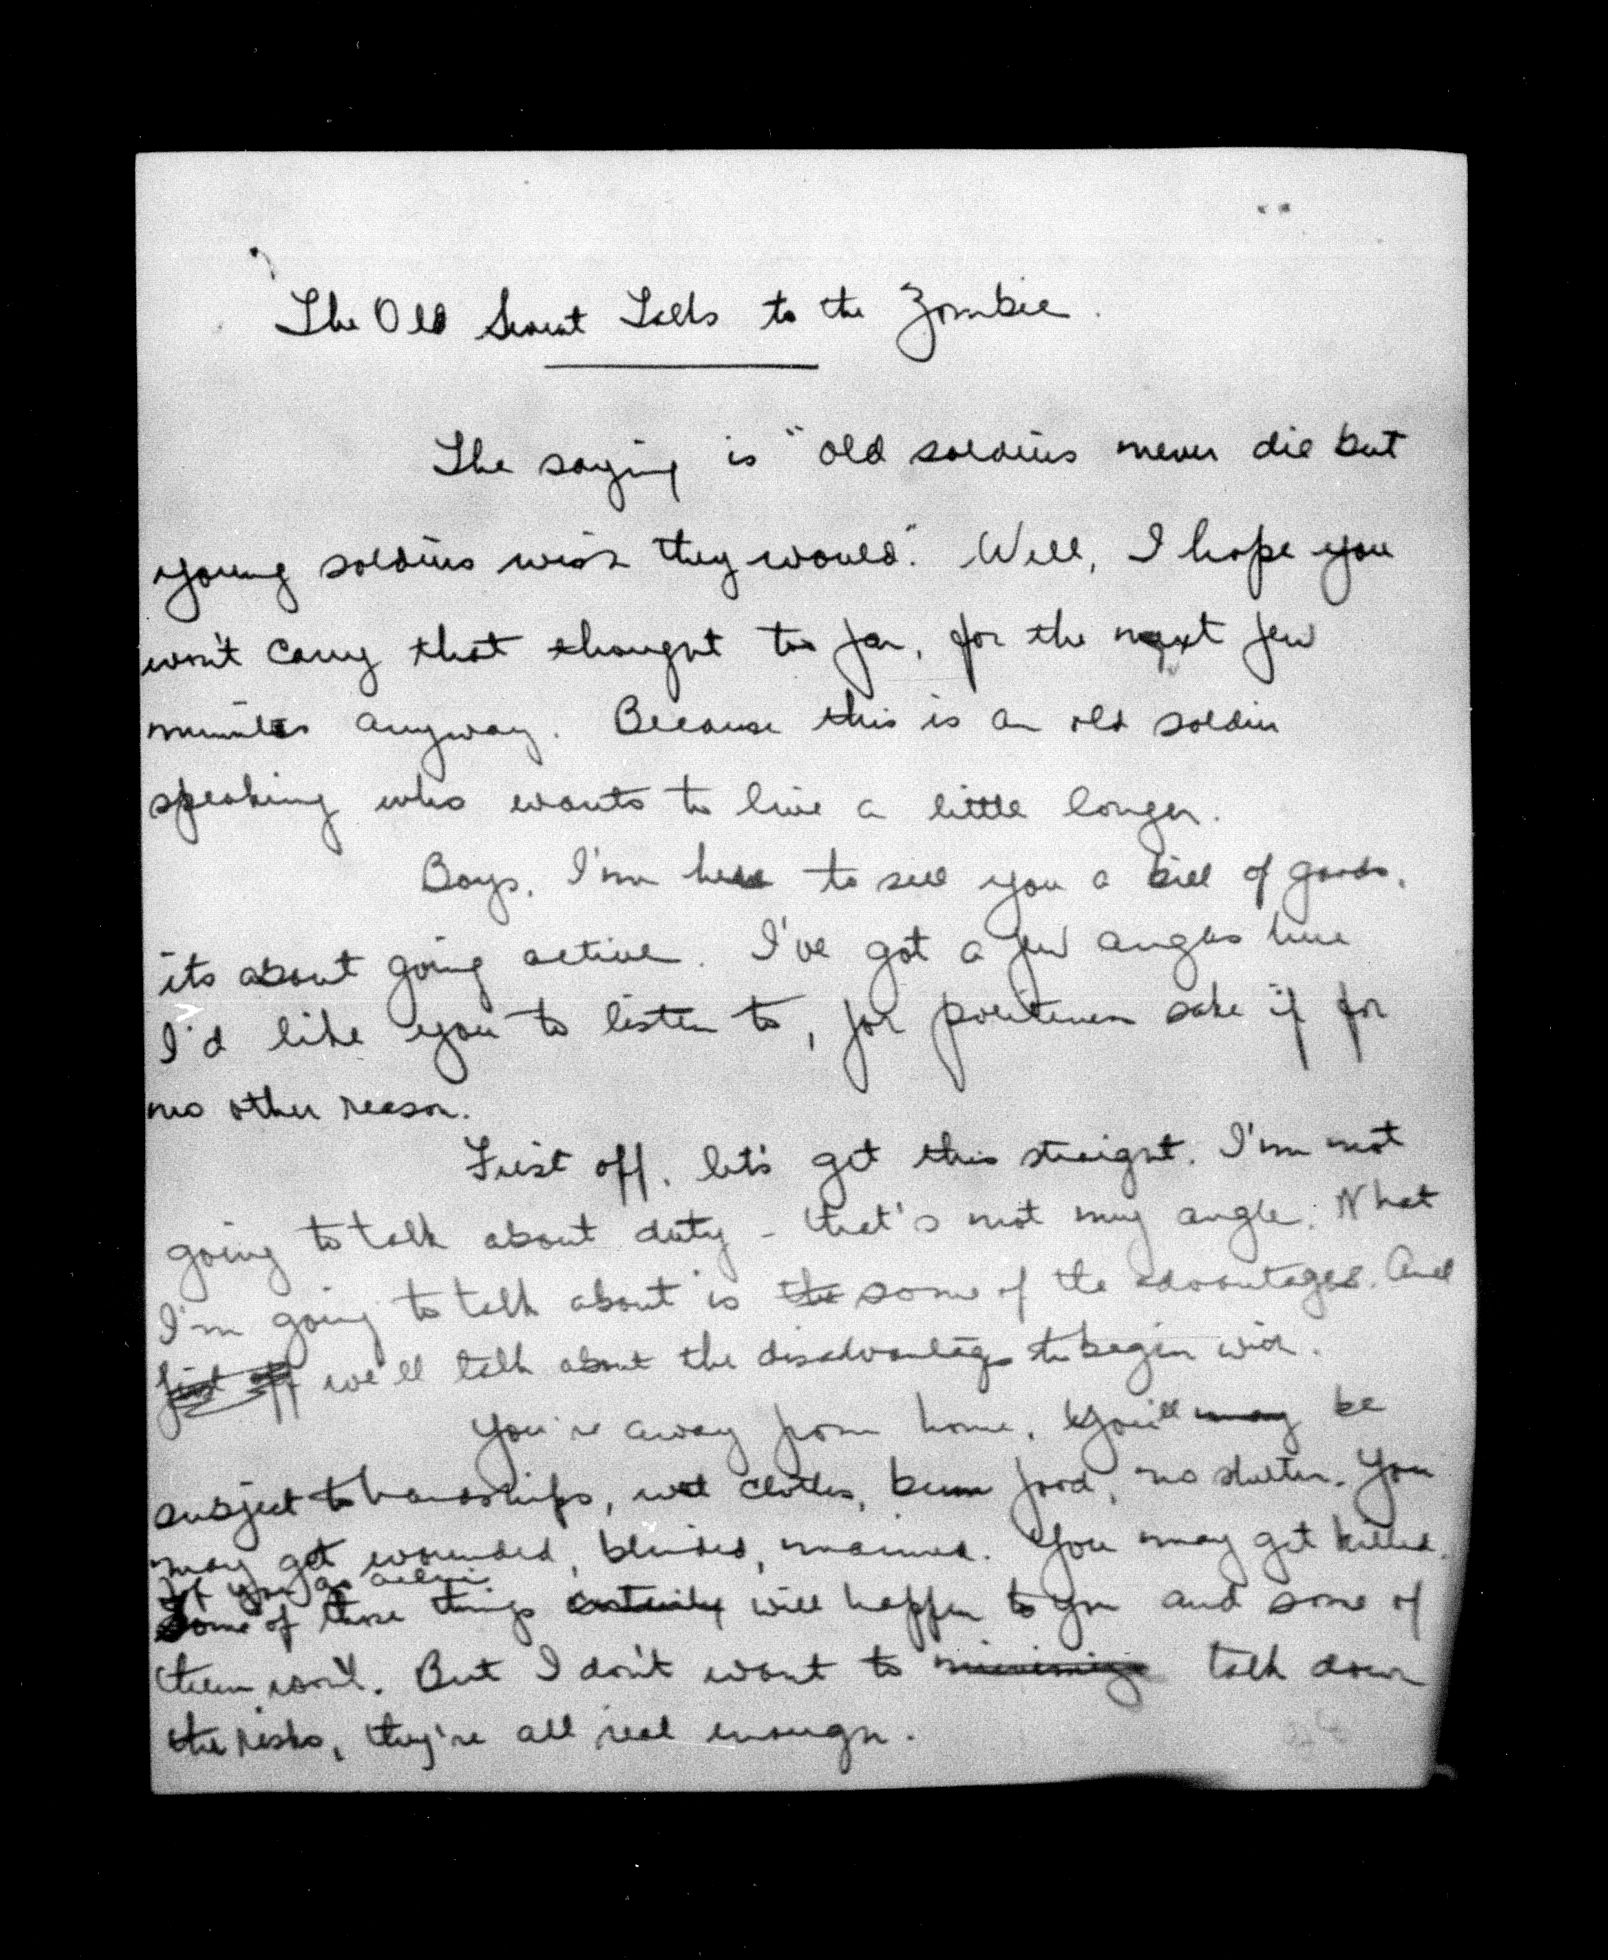 The Old Sweat Talks to the Zombie.
The saying is "old soldiers never die but
young soldiers wish they would". Well, I hope you
won't carry that thought too far, for the next few
minutes anyway. Because this is an old soldier
speaking who wants to live a little longer.
Boys, I'm here to sell you a bill of goods,
its about going active. I've got a few angles here
I'd like you to listen to, for politeness sake if for
no other reason.
First off, let's get this straight. I'm not
going to talk about duty - that's not my angle. What
I'm going to talk about is the some of the advantages. And
first off we'll talk about the disadvantages to begin with.
You're away from home. You'll may be
subject to hardships, wet clothes, bum food, no shelter. You
may get wounded, blinded, maimed. You may get killed.
If you go active
Some of those things certainly will happen to you and some of
them won't. But I don't want to minimize talk down
the risks, they're all real enough.